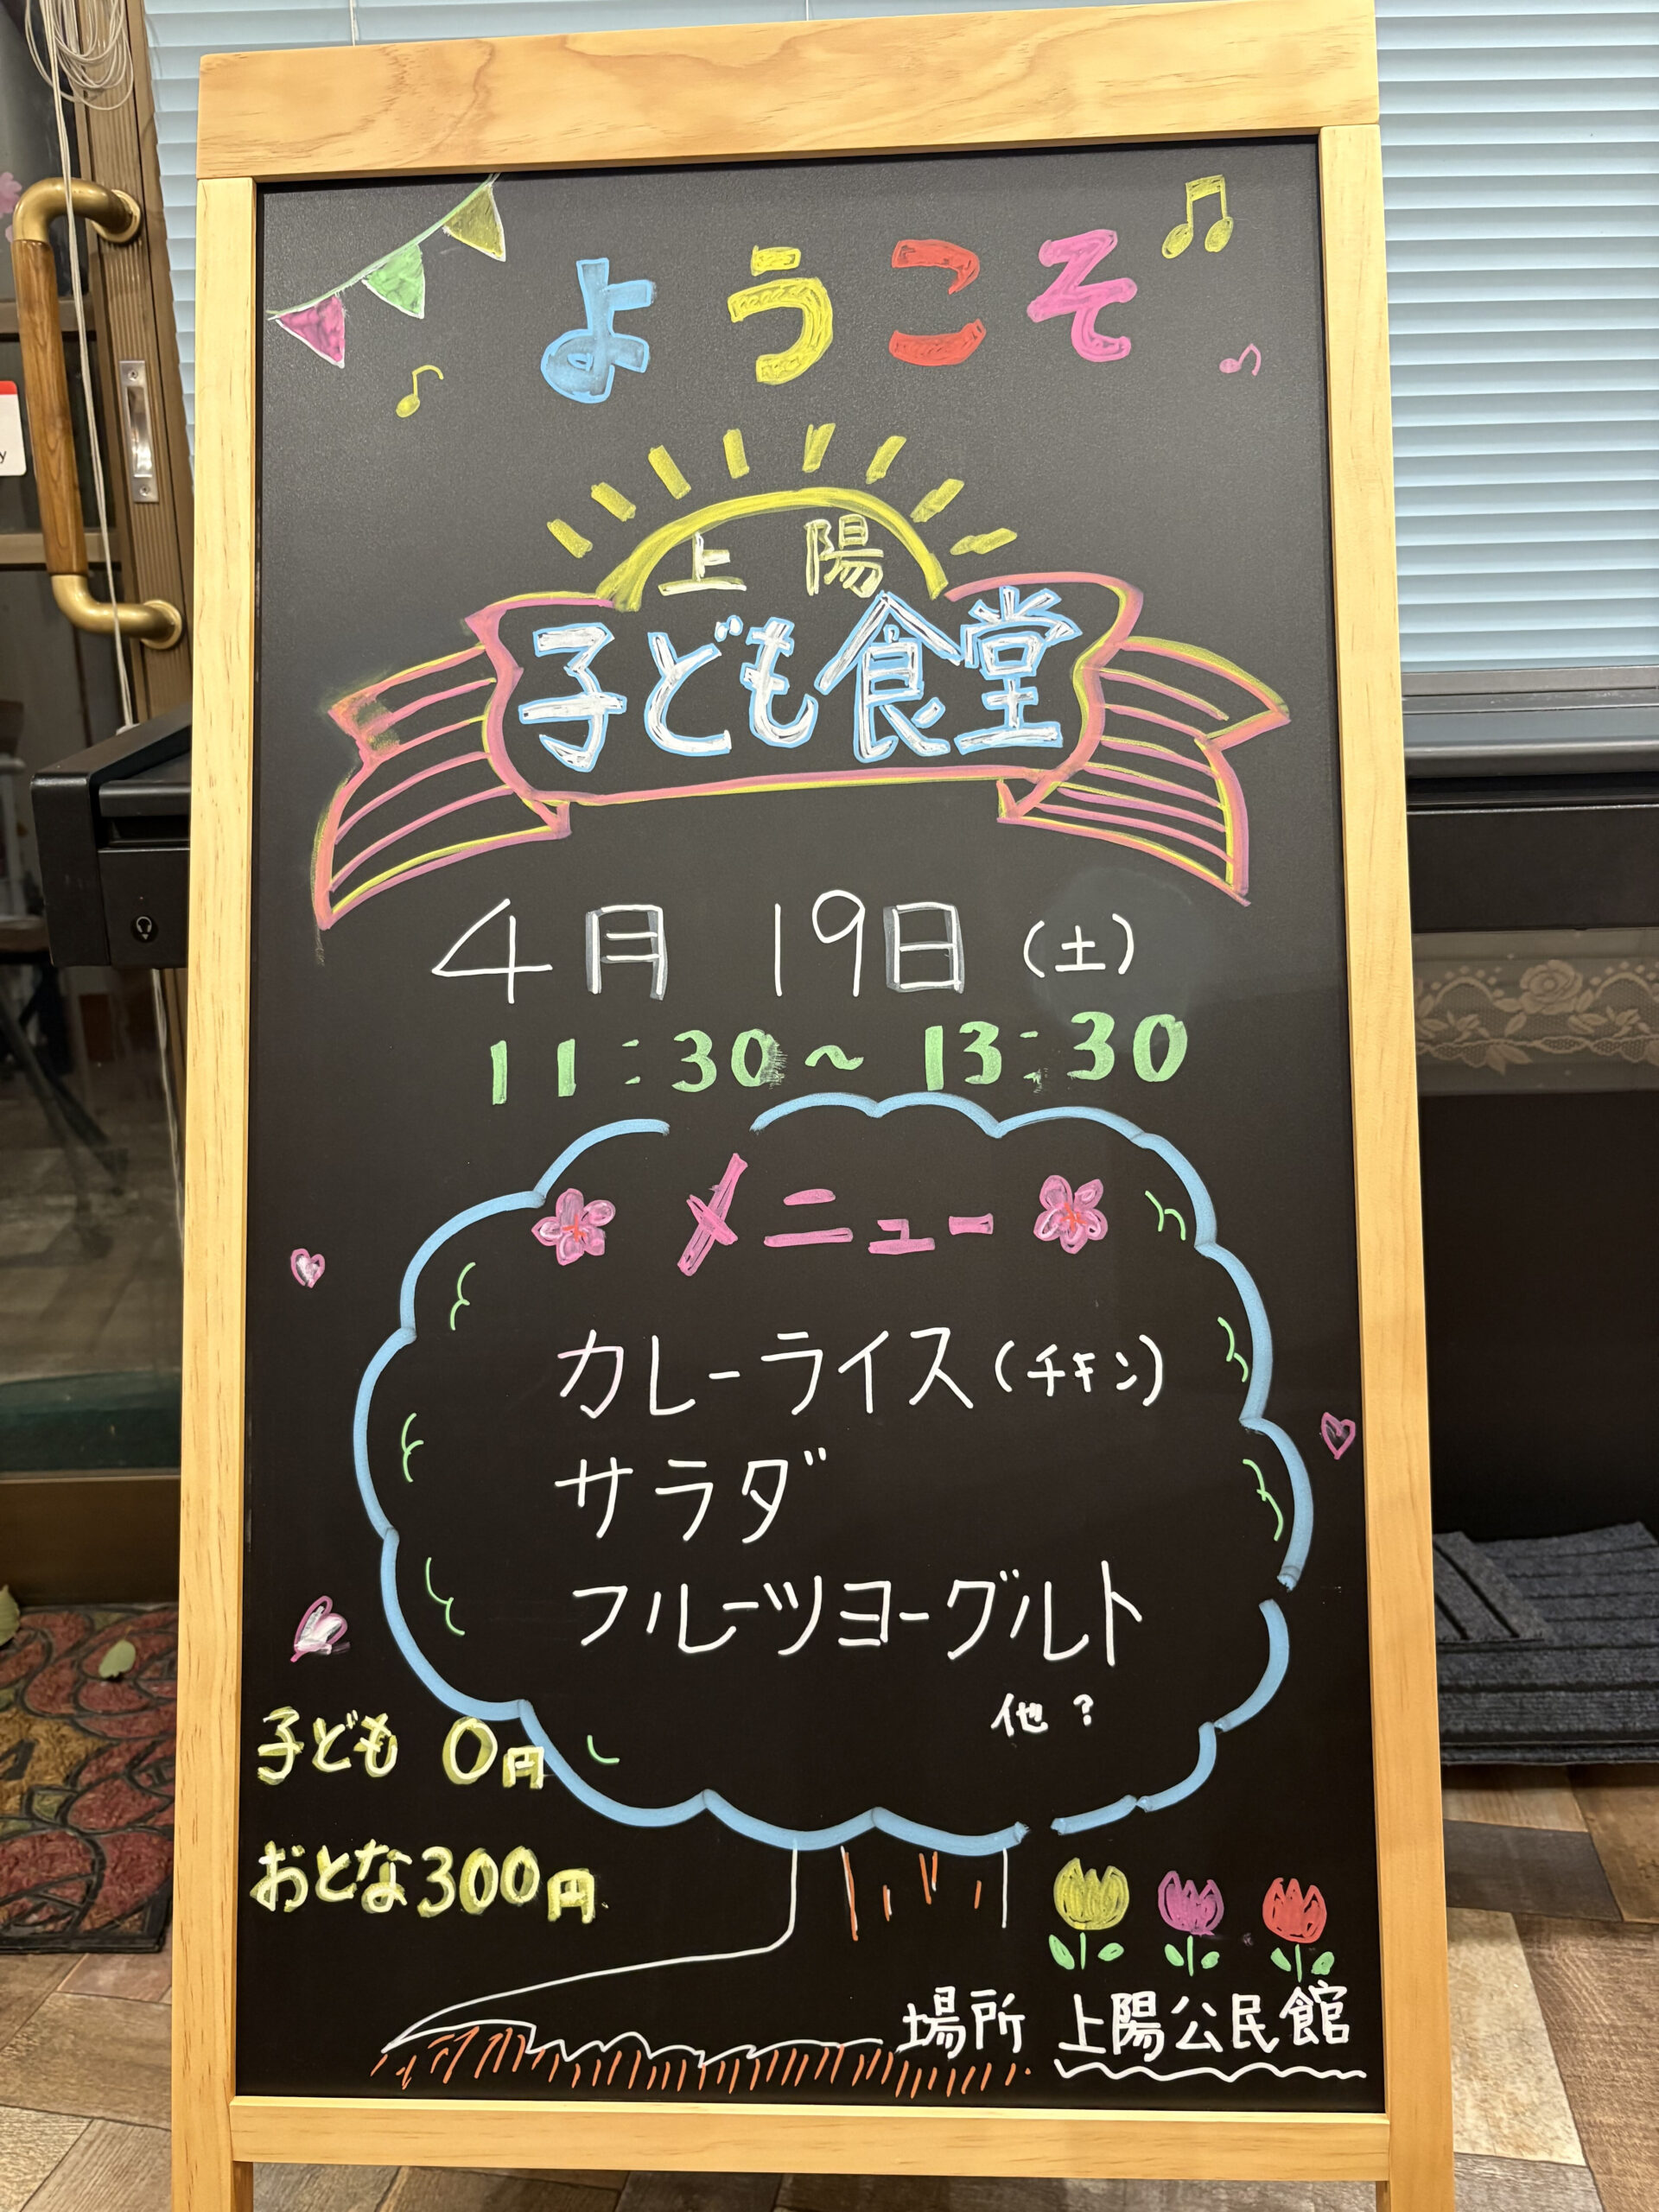 ようこそ
上陽
子ども食堂
4月 19日 (土)
11:30~13:30
メニュー
カレーライス(チキン)
サラダ
フルーツヨーグルト
他?
子ども 0円
おとな300円
場所 上陽公民館